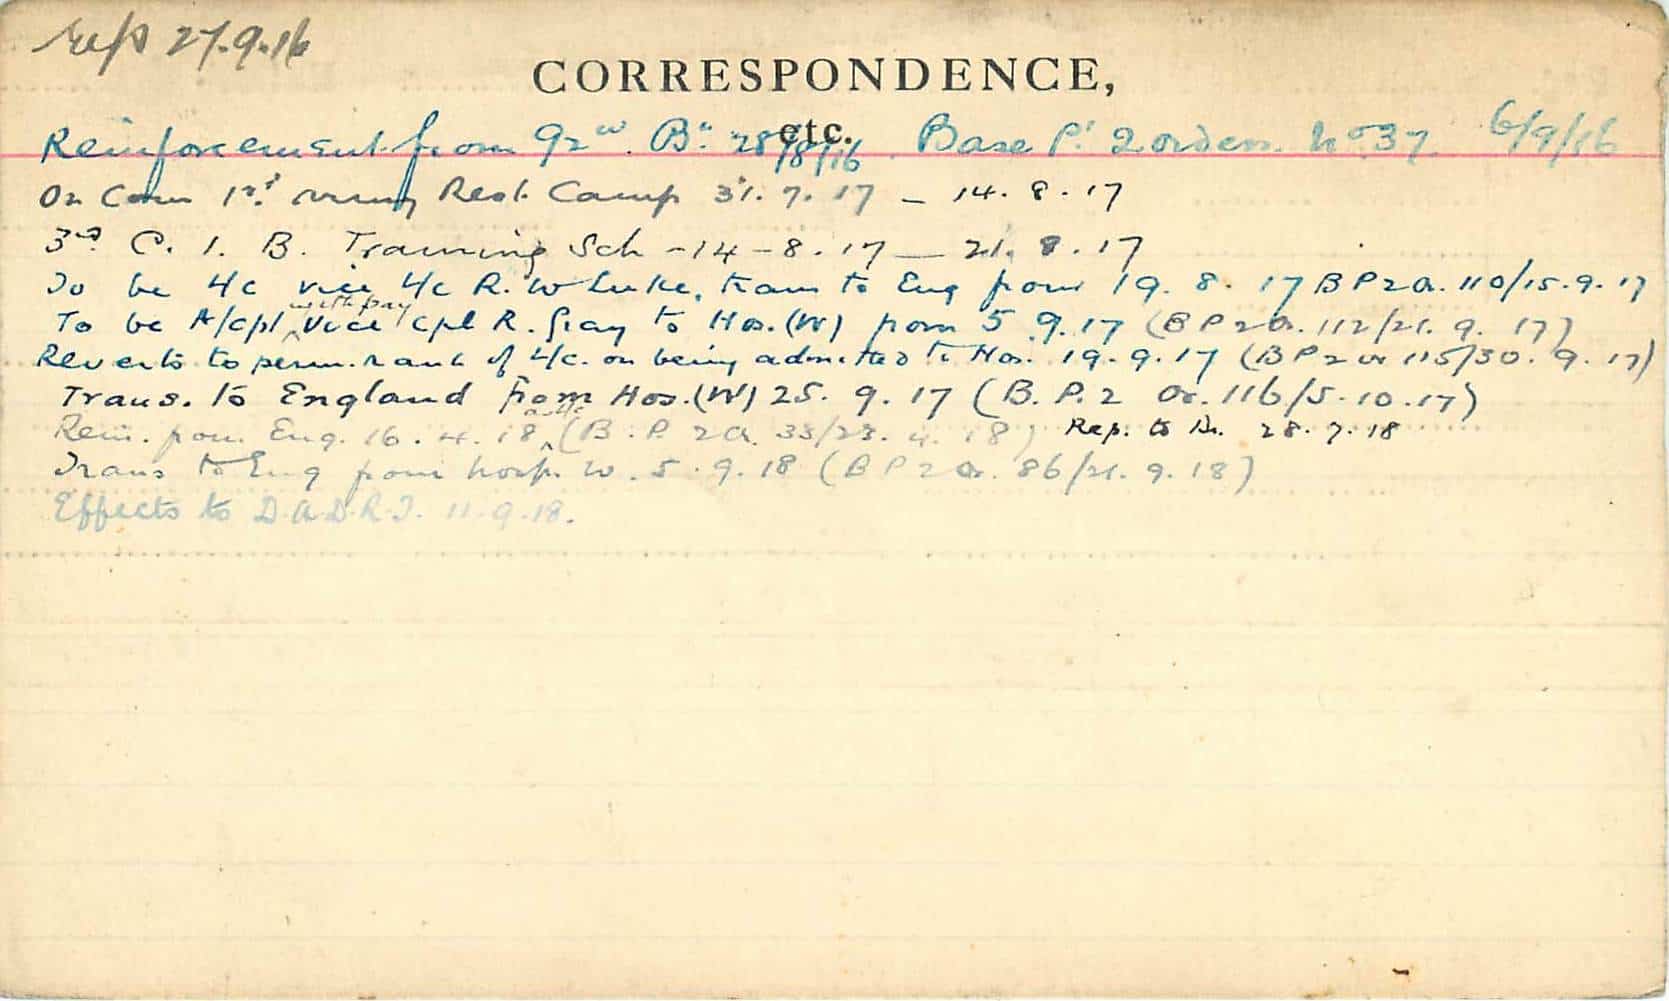 27.9.16
CORRESPONDENCE,
etc.
Reinforcement from 92nd. Bn 28/8/16. Base Pt 2 orders. No 37. 6/9/16
On Com 1st Army Rest Camp 31.7.17 - 14.8.17
3rd C. I. B. Training Sch - 14-8.17 — 21.8.17
To be L/c vice L/c R. W Luke, trans to Eng from 19.8.17 B P 2 O. 110/15.9.17
with pay
To be A/cpl ^ vice Cpl R. Gray to Hos.(W) from 5.9.17 (B P 2 O. 112/21.9.17)
Reverts to perm. rank of L/c. on being admitted to Hos. 19.9.17 (B P 2 or 115/30.9.17)
Trans. to England from Hos.(W) 25.9.17 (B.P.2 Or. 116/5.10.17)
auth
Rein. from Eng. 16.4.18 ^ (B.P. 2 O. 33/23.4.18) Rep. to Bn. 28.7.18
Trans to Eng from hosp. W. 5.9.18 (B P 2 O. 86/21.9.18)
Effects to D.A.D.R.T. 11.9.18.